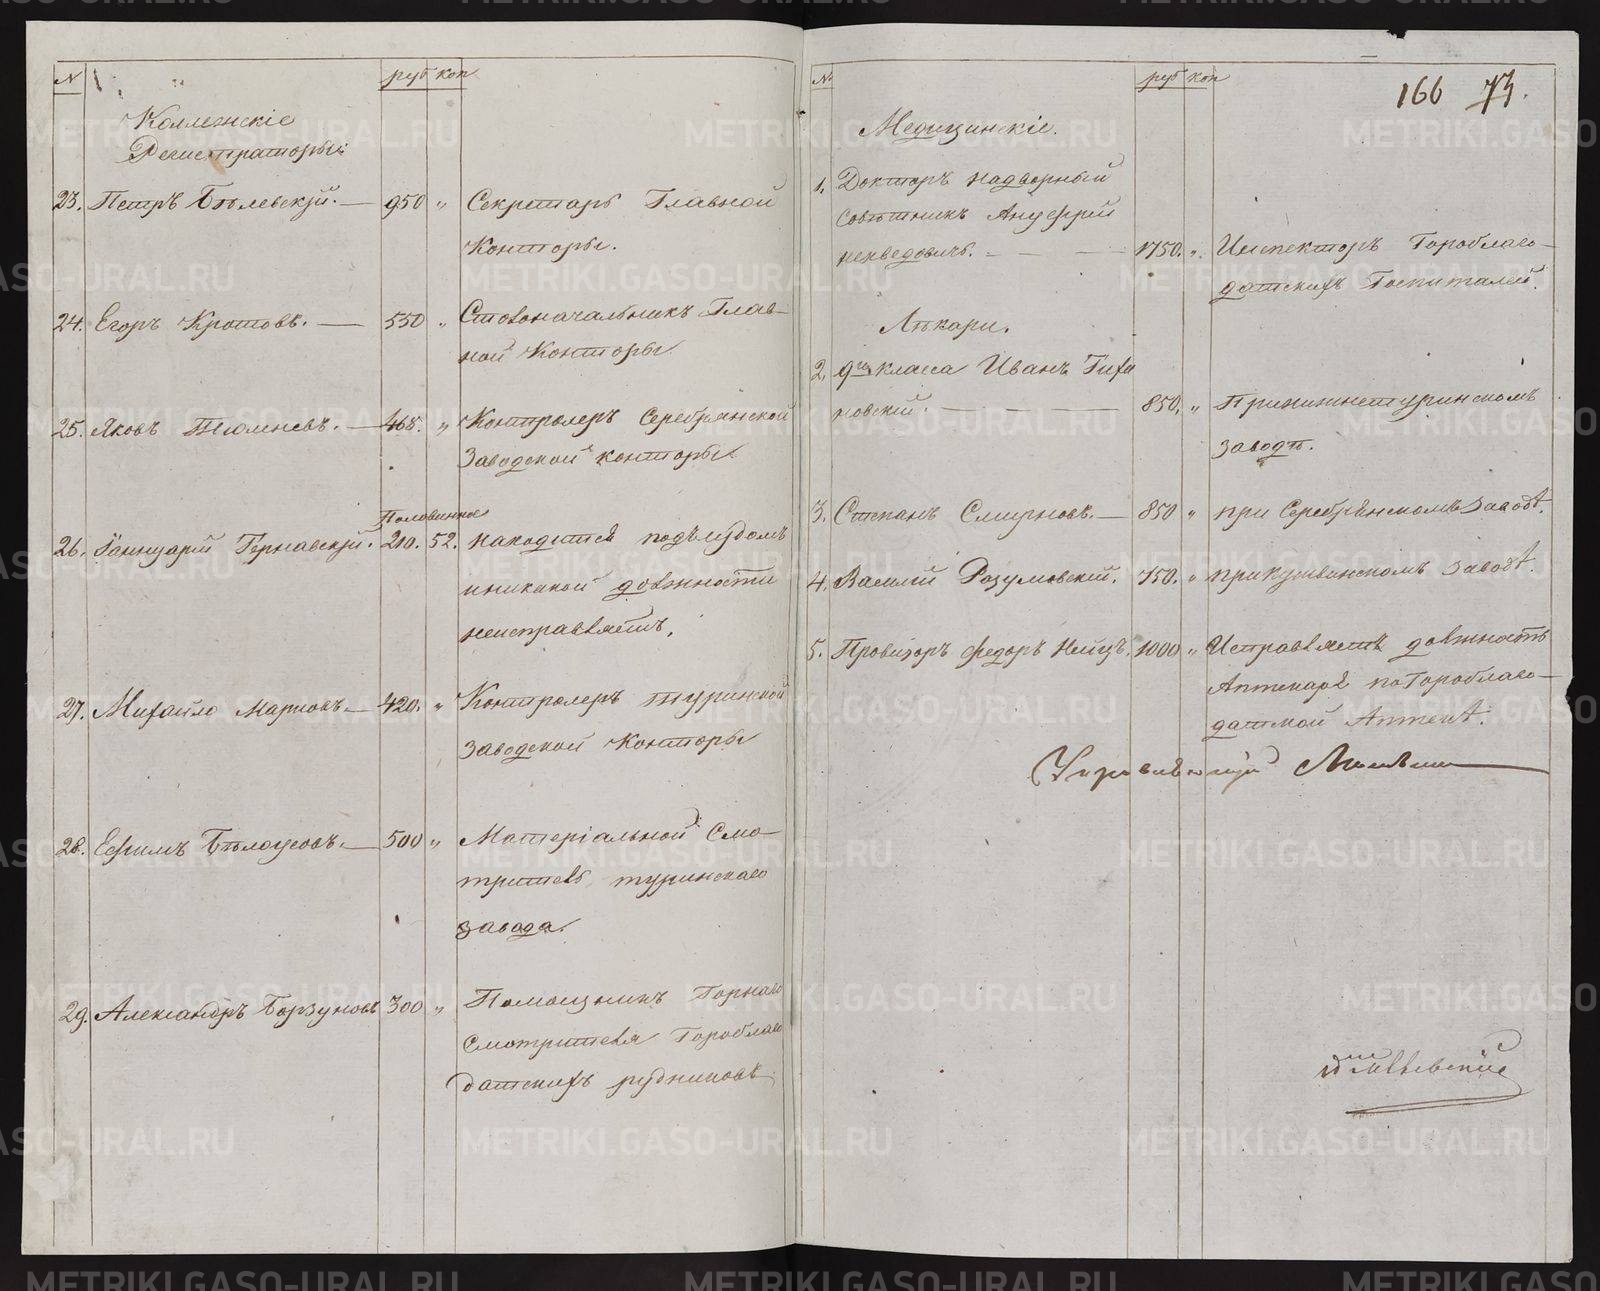 № руб коп
Коллежскіе
Регистраторы:
23. Петръ Бѣлевскій. — 950 „ Секретарь Главной
Конторы.
24. Егоръ Кротовъ. — 550 „ Столоначальникъ Глав-
ной Конторы.
25. Яковъ Тюменевъ. — 465. „ Контролеръ Серебрянской
Заводской конторы.
Половинное
26. Іаннуарій Чернавскій. 210. 52. находится подъ судомъ
и никакой должности
неисправляетъ.
27. Михайло Марковъ. — 420. „ Контролеръ туринской
Заводской Конторы
28. Ефимъ Бѣлоусовъ. — 500 „ Матеріальной Смо-
тритель туринскаго
завода.
29. Александръ Борзуновъ 300 „ Помощникъ Горнаго
Смотрителя Гороблаго
датскихъ рудниковъ
№ руб коп
166 73.
Медицинскіе.
1. Докторъ надворный
совѣтникъ Ануфрій
1750. „ Инспекторъ Гороблаго-
датскихъ Госпиталей.
Лѣкари.
2. 9го класса Иванъ Тиха
новскій. — 850. „ При нижнетуринскомъ
заводѣ.
3. Степанъ Смирновъ. — 850 „ при Серебрянскомъ Заводѣ.
4. Василій Розумовскій. 750. „ при кушвинскомъ Заводѣ.
5. Провизоръ Федоръ 1000 „ Исправляетъ должность
Аптекаря по Гороблаго-
датской Аптекѣ.
Управляющій
METRIKI.GASO-URAL.RU